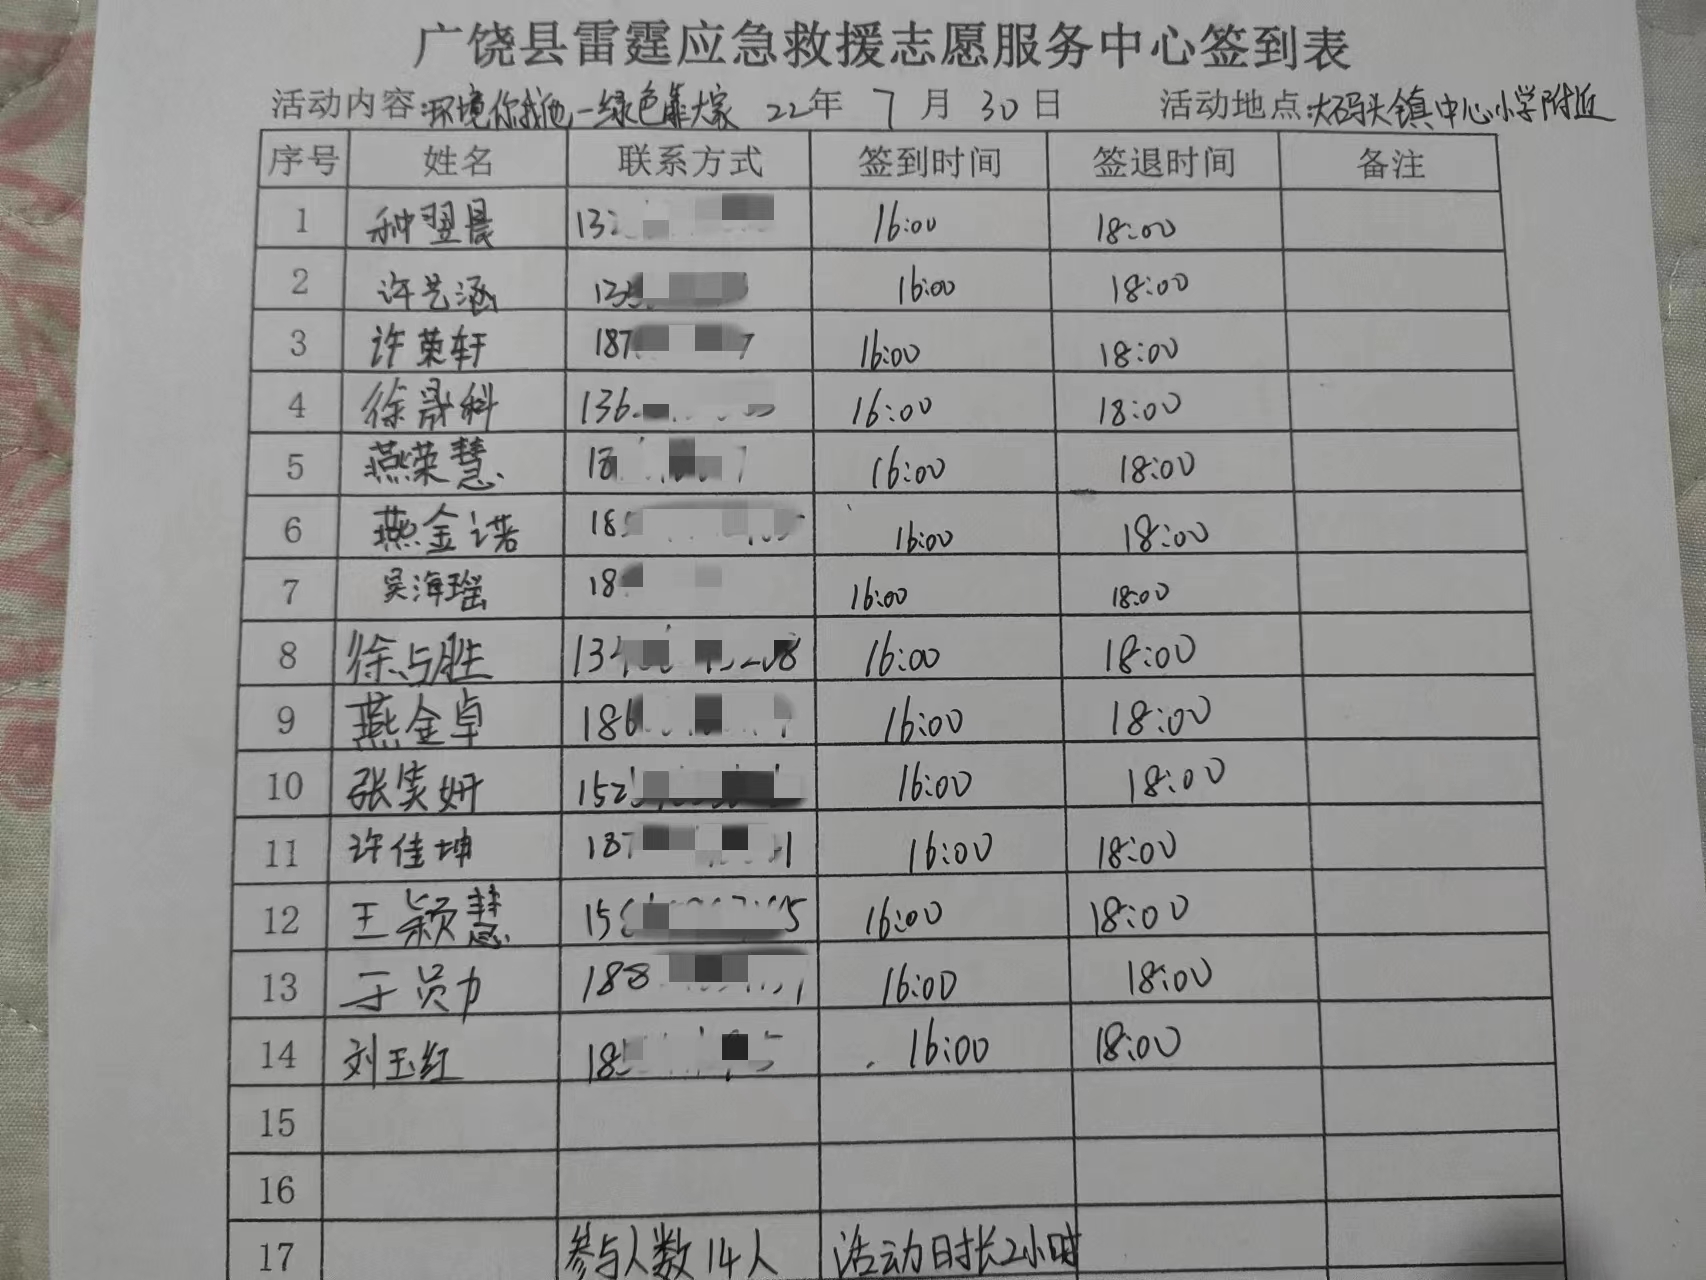 广饶县雷霆应急救援志愿服务中心签到表
活动内容:环境你我他—绿色靠大家 22年 7月 30日 活动地点:大码头镇中心小学附近
序号 姓名 联系方式 签到时间 签退时间 备注
1 种翌晨 13 16:00 18:00
2 许艺涵 16:00 18:00
3 许荣轩 187 16:00 18:00
4 徐晟科 136 16:00 18:00
5 燕荣慧 18 16:00 18:00
6 燕金诺 18 16:00 18:00
7 吴海瑶 18 16:00 18:00
8 徐与胜 13 16:00 18:00
9 燕金卓 186 16:00 18:00
10 张笑妍 152 16:00 18:00
11 许佳坤 187 16:00 18:00
12 王颖慧 15 16:00 18:00
13 于员力 188 16:00 18:00
14 刘玉红 18 16:00 18:00
15
16
17 参与人数14人 活动时长2小时